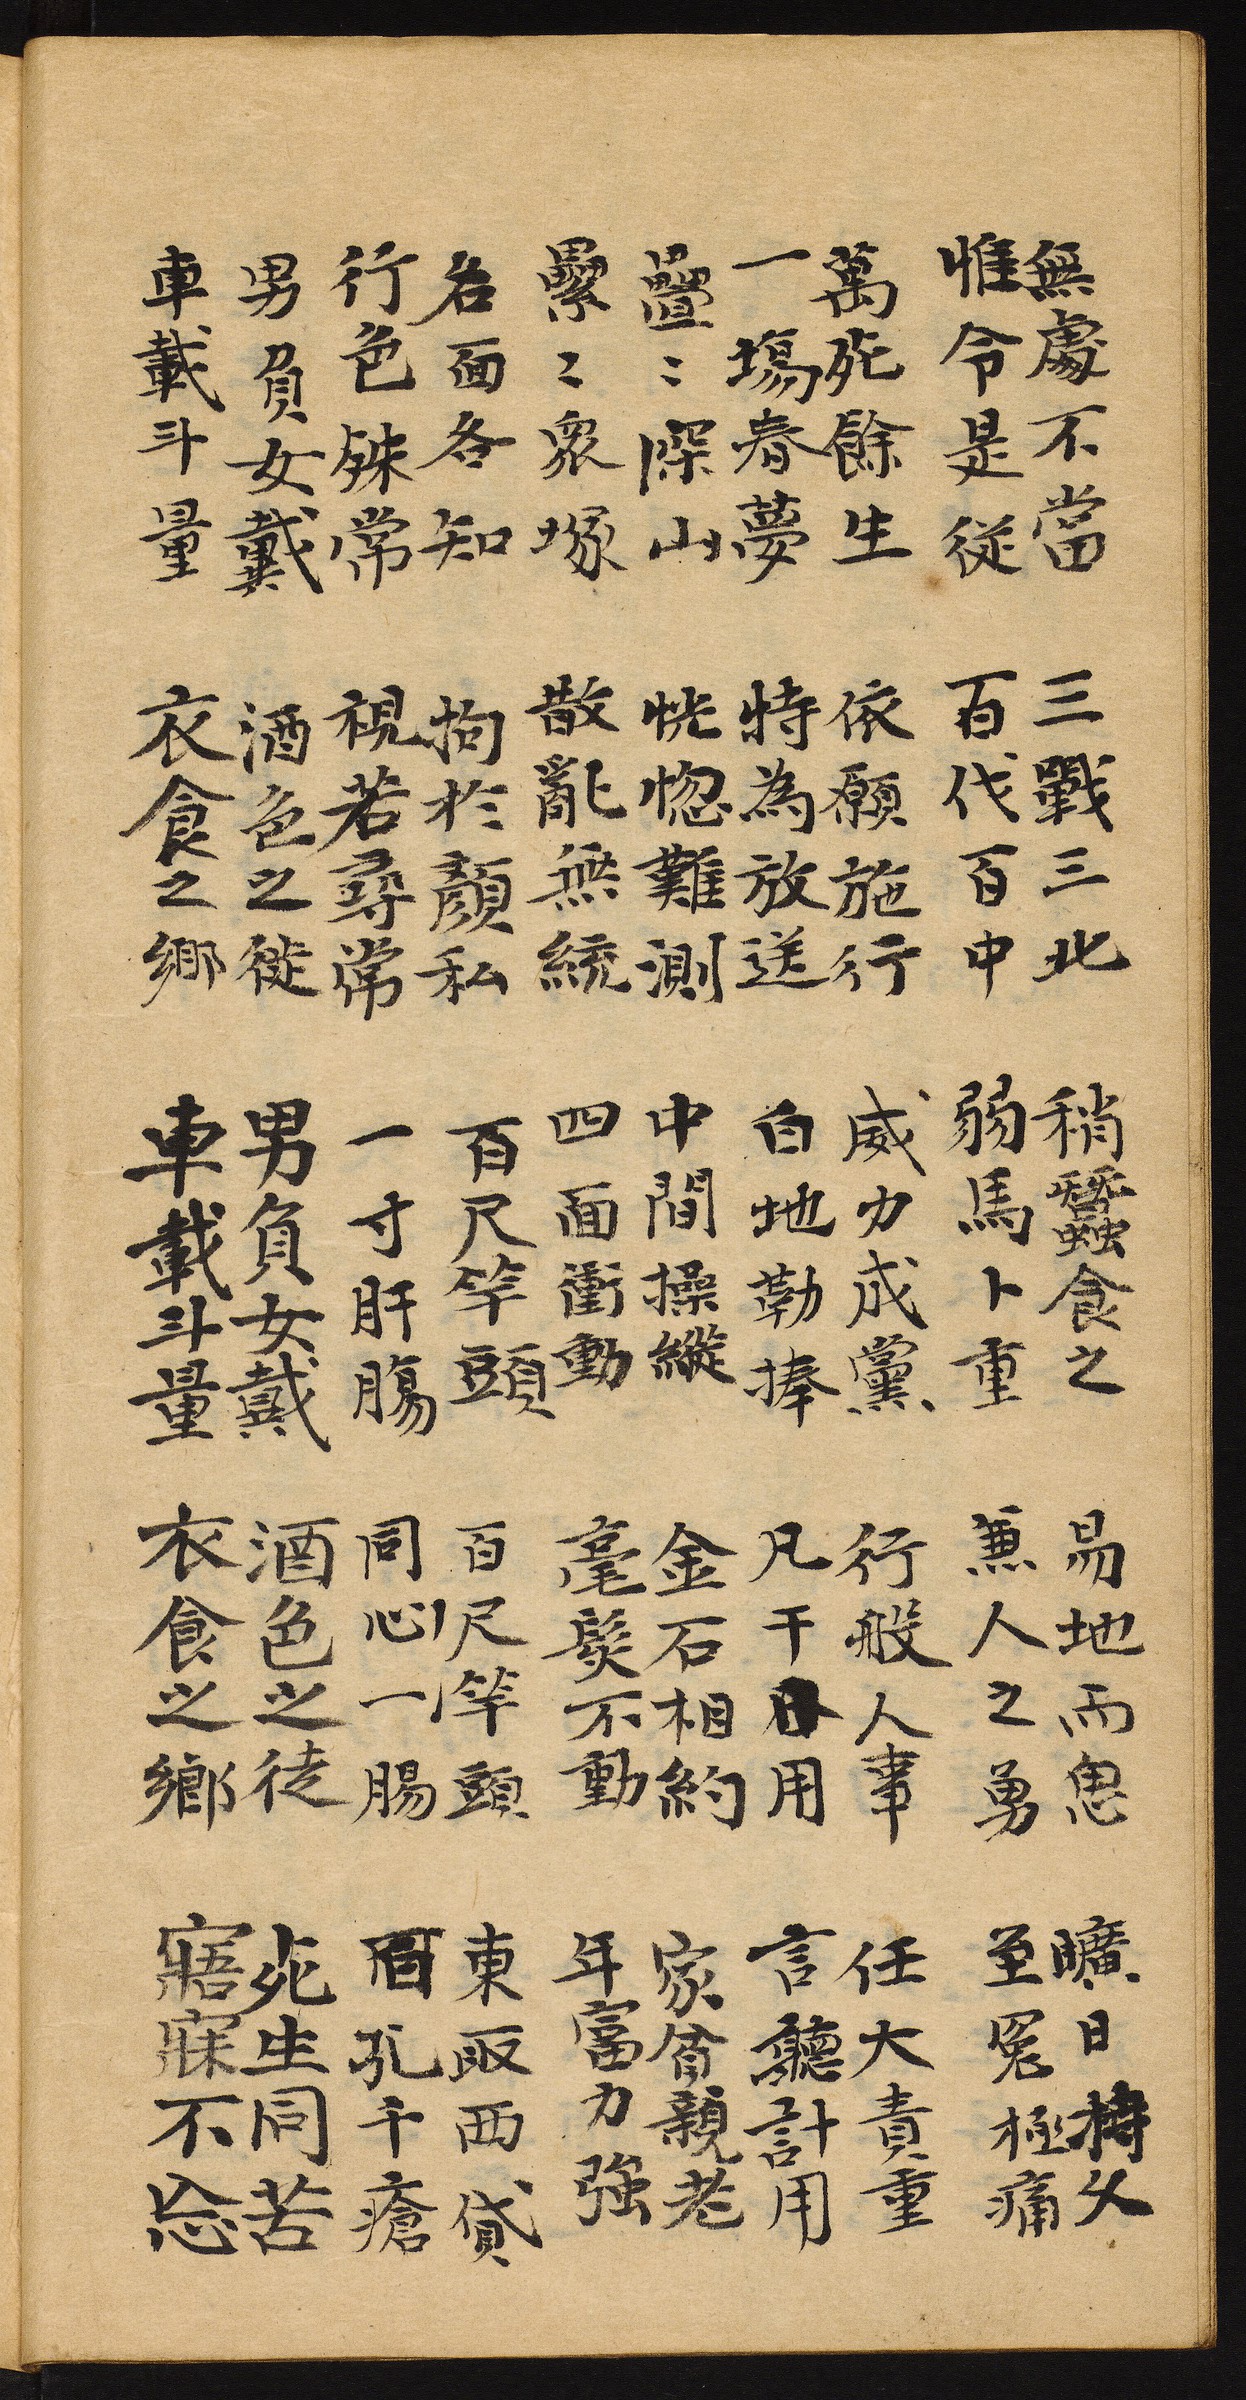 無處不當 三戰三北 稍蠶食之 易地而思 曠日持久
惟令是從 百代百中 弱馬卜重 兼人之勇 至冤極痛
萬死餘生 依願施行 威力成黨 行般人事 任大責重
一塲春夢 特為放送 白地勒捧 凡干日用 言聽計用
疊〻深山 恍惚難測 中間操縱 金石相約 家貧親老
纍〻衆塚 散亂無統 四面衝動 毫髮不動 年富力強
名面各知 拘於顏私 百尺竿頭 百尺竿頭 東取西貸
行色殊常 視若尋常 一寸肝腸 同心一腸 百孔千瘡
男負女戴 酒色之徒 男負女戴 酒色之徒 死生同苦
車載斗量 衣食之鄉 車載斗量 衣食之鄉 寤寐不忘